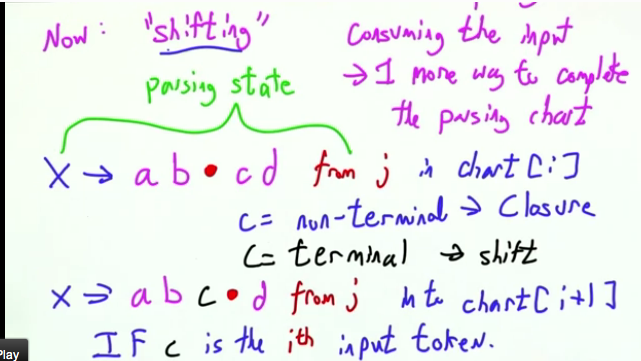 Now: "shifting"
consuming the input
→ 1 more way to complete
the parsing chart
parsing state
X → a b • c d from j in chart [i]
c = non-terminal → Closure
c = terminal → shift
X → a b c • d from j into chart [i+1]
IF c is the ith input token.
Play